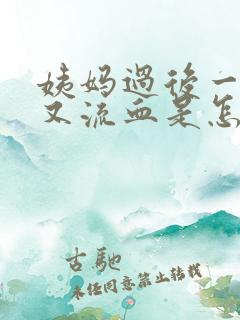 姨妈过后一
又流血是怎
古馳
未经同意禁止转载